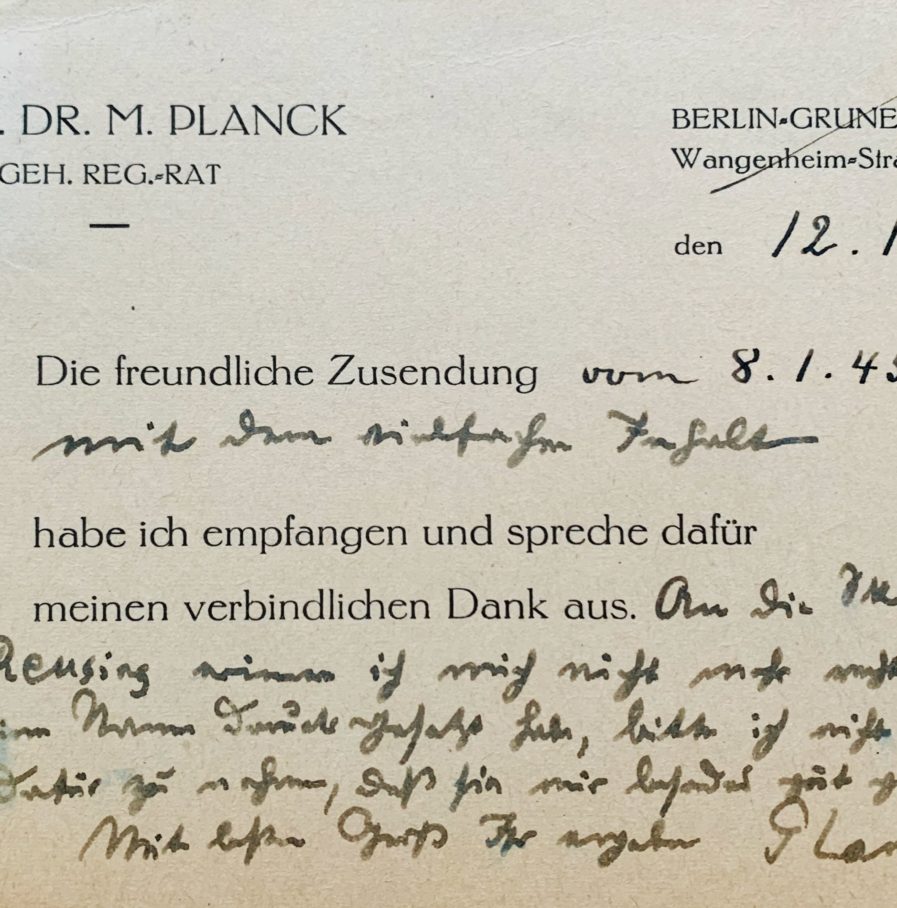 . DR. M. PLANCK
GEH. REG.-RAT
BERLIN-GRUNE
Wangenheim-Stra
den 12. 1
Die freundliche Zusendung vom 8. 1. 43
mit dem vielfachen Inhalt
habe ich empfangen und spreche dafür
meinen verbindlichen Dank aus. An die
Reusing erinnere ich mich nicht mehr
Namen darunter gesetzt habe, bitte ich nicht
dafür zu nehmen, daß sie mir besonders gut
Mit bestem Gruß Ihr ergebener Plan